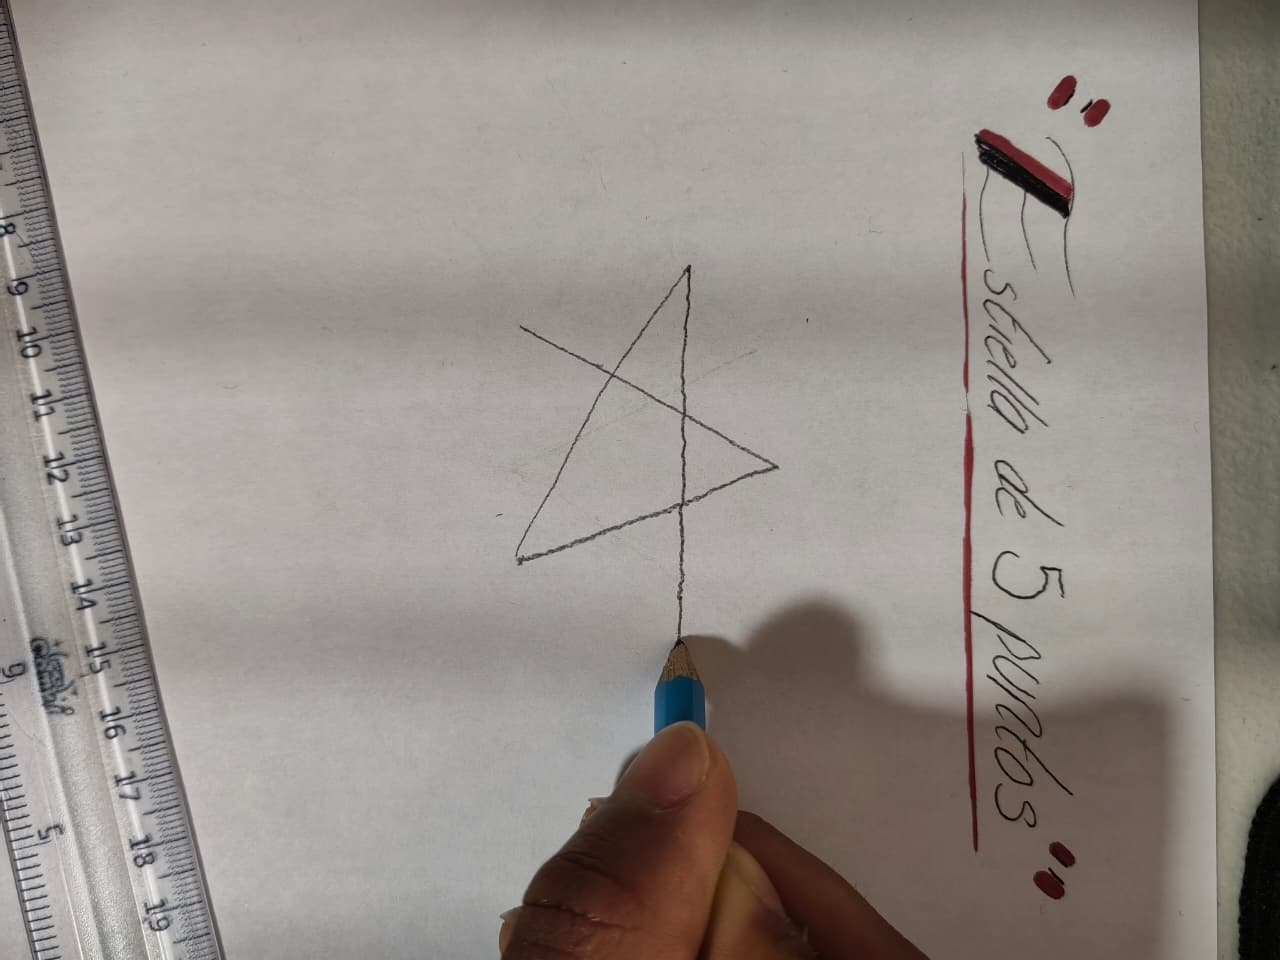 "Estrella de 5 puntos"
8 9 10 11 12 13 14 15 16 17 18 19
9 5